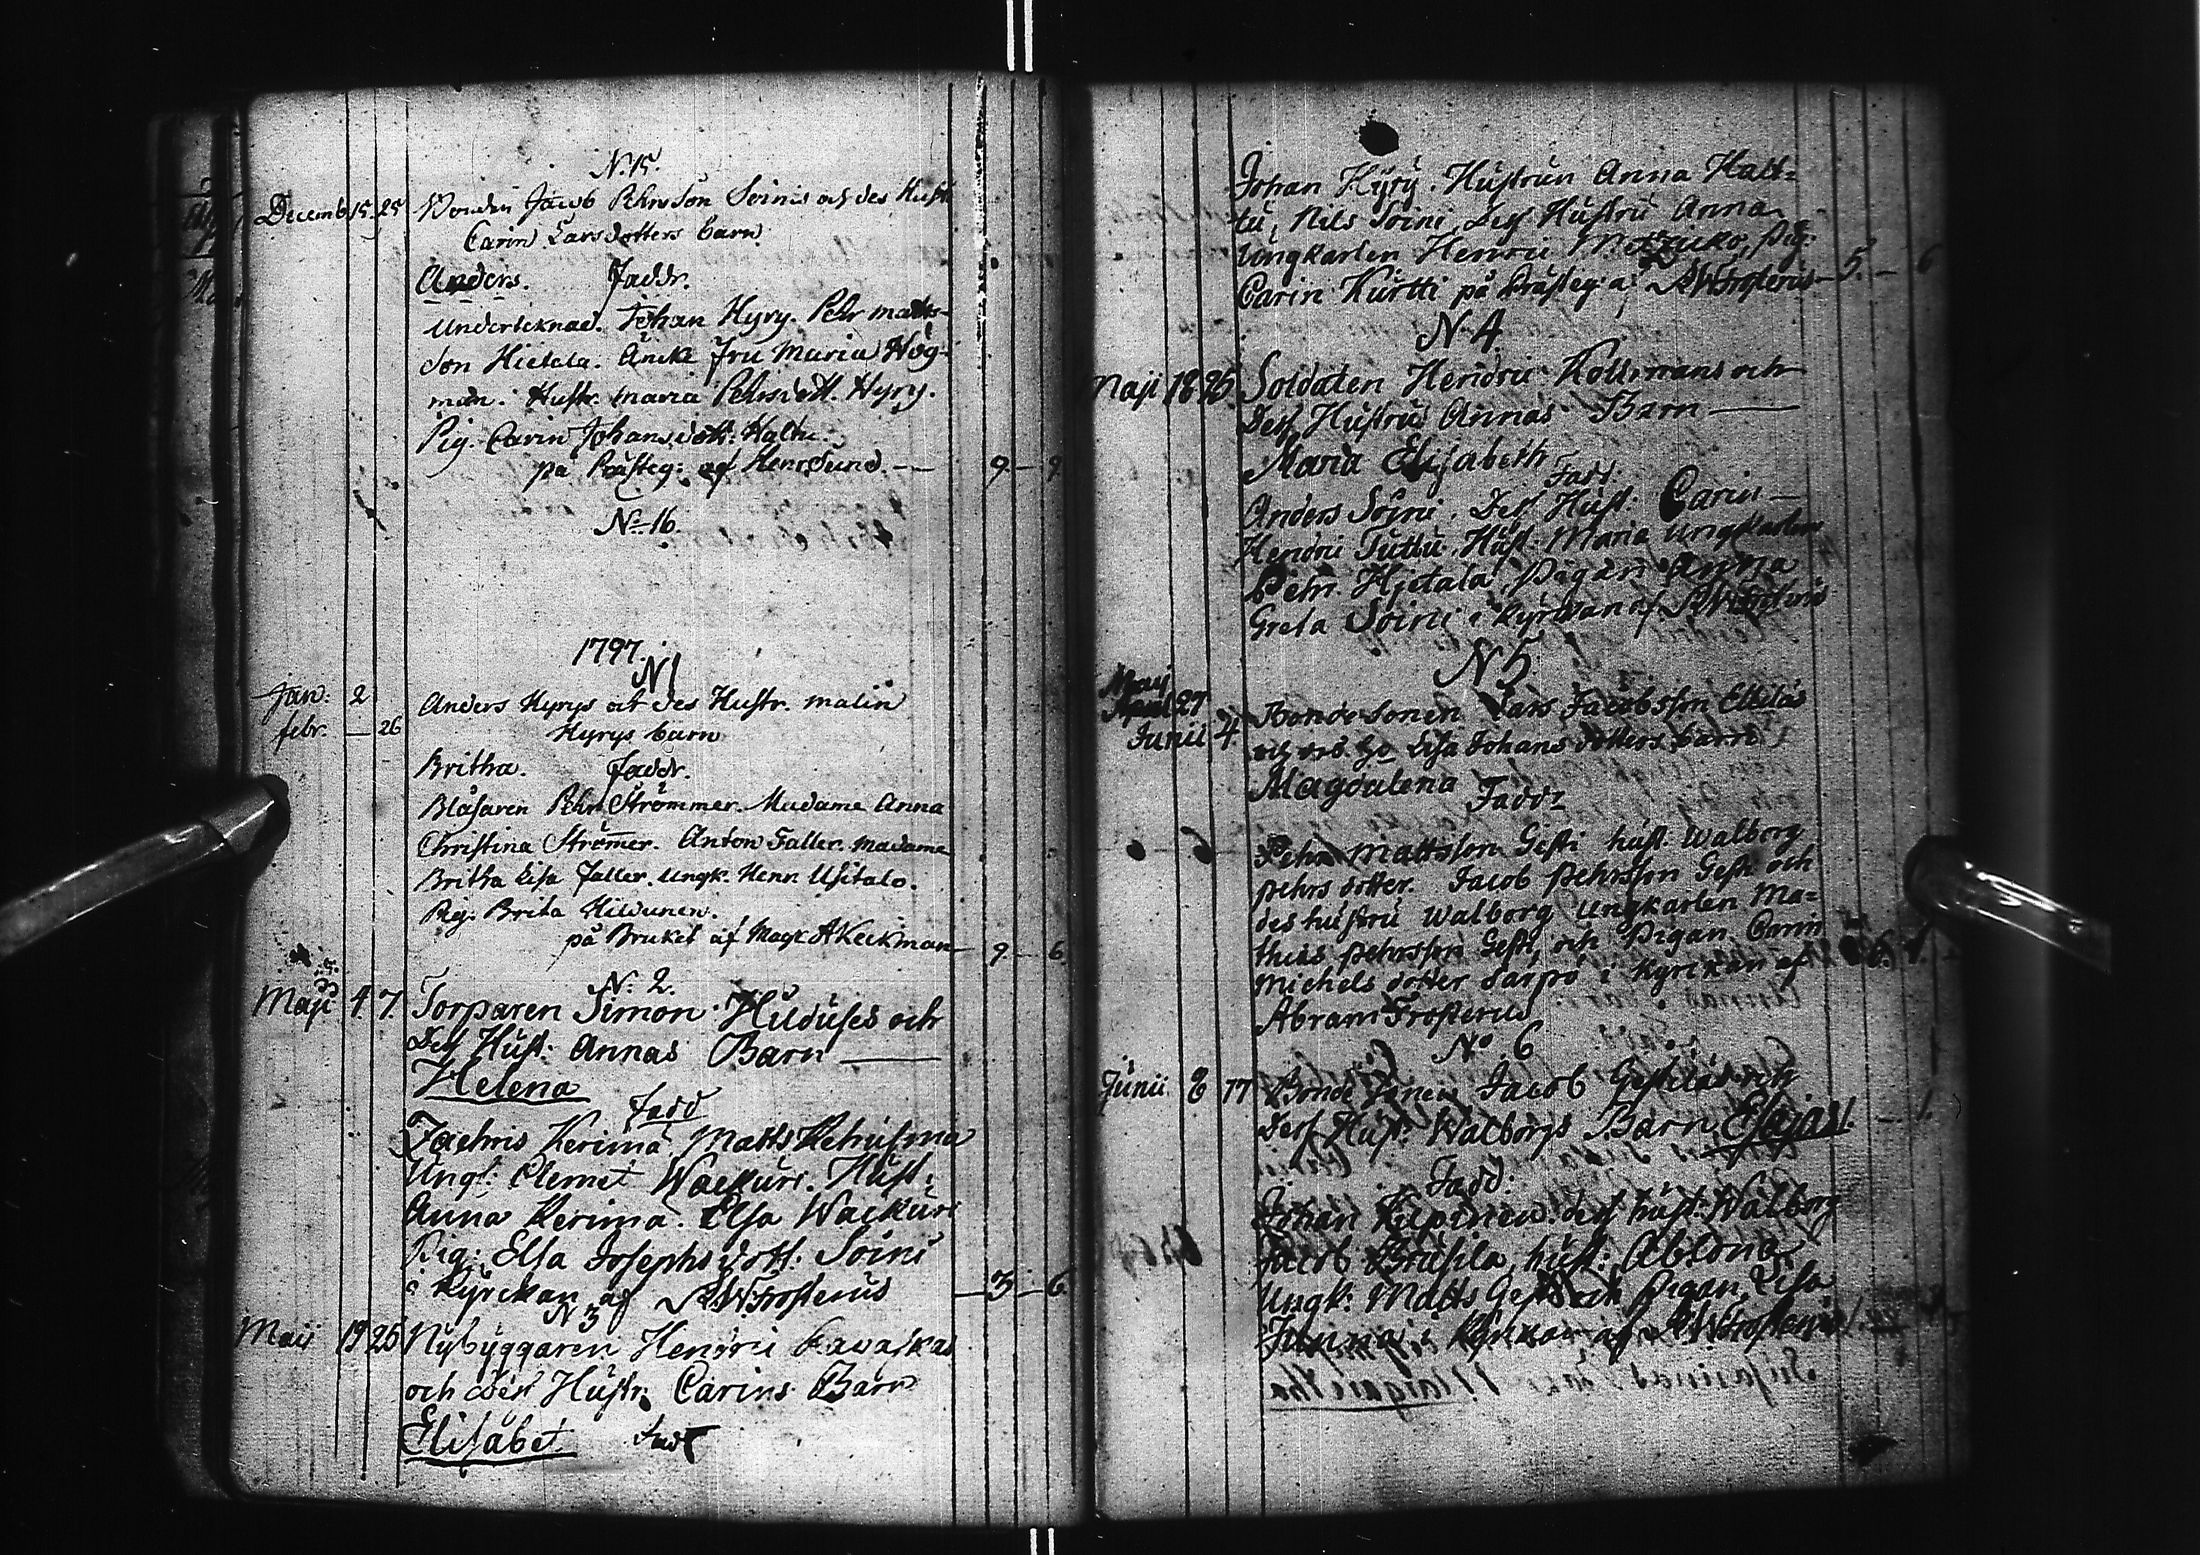 N. 15.
Decemb 15. 25 Bonden Jacob Pehrsson Soinis och des Hustr
Carin Larsdotters barn
Anders. Faddr.
Underteknad. Johan Hyry. Pehr Matts-
son Hietala. Änck Fru Maria Hög-
man. Hustr. Maria Pehrsdott. Hyry.
Pig. Carin Johansdott: Hattu.
på Prästeg: af Henr. Sund. — 9 — 9.
No 16.
1797.
N 1
Jan: 2
febr. — 26
Anders Hyrys och des Hustr. Malin
Hyrys barn
Britha. Faddr.
Blåsaren Pehr Strömmer. Madame Anna
Christina Strömer. Anton Faller. Madame
Britha Lisa Faller. Ungk. Henr. Usitalo.
Pig. Brita Hildunen.
på Bruket af Mag. A Keckman — 9 — 6.
N. 2.
Maji 4 7. Torparen Simon Huduses och
Dess Hust. Annas Barn —
Helena
Fadd
Zachris Kerimä. Matts Rehusma
Ungk: Clemet Wackuri. Hust:
Anna Kerimä. Elsa Wackuri
Pig: Elsa Josephs dott. Soini
i Kyrckan af Frosterus — 3 — 6.
N 3
Maii 19 25 Nybyggaren Henric Lawajkas
och des Hustr. Carins Barn
Elisabet Fadd
Johan Hyry. Hustrun Anna Hatt=
tu, Nils Soini Dess Hustru Anna
Ungkarlen Henric Pig:
Carin Kurtti på Prästeg. af Frosterus — 5. — 6
N 4
Maji 18 25 Soldaten Henric Kollmans och
Dess Hustrus Annas Barn —
Maria Elisabeth
Fadd.
Anders Soini. Dess Hust. Carin —
Henric Tuttu Hust. Maria Ungkarlen
Pehr Hjetala Pigan Anna
Greta Soini i kyrckan af Frosterus
N 5
Maij
27
Junii 4.
Bonde Sonen Lars Jacobsson
Lisa Johans dotters barn
Magdalena
Faddr
Pehr Mattsson Gesti hust. Walborg
Pehrs dotter. Jacob Pehrsson Gesti och
des hustru Walborg Ungkarlen Ma=
thias Pehrsson Gesti, och Pigan Carin
Michels dotter Sarpo i Kyrckan af
Abram Frosterus
No 6
Junii 8 17 Bonde Sonen Jacob och
Dess Hust. Walborgs Barn Esajas
Fadd:
Johan Kilpinen dess hust. Walborg
Jacob hust:
Ungk: Matts Gesti och Pigan Lisa
i Kyrckan af Frosterus